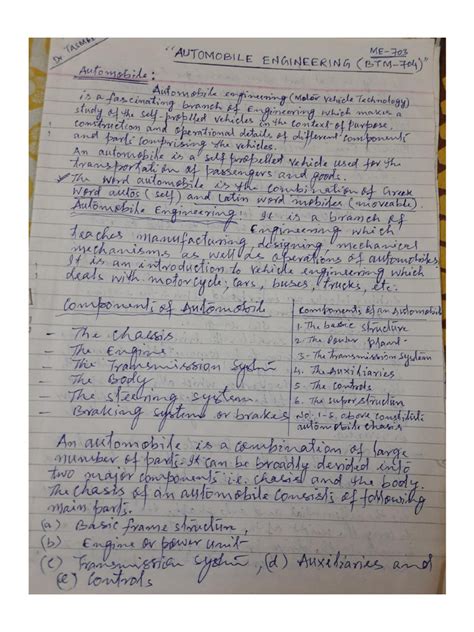 ME-703
"AUTOMOBILE ENGINEERING (BTM-704)"
Automobile:
Automobile engineering (Motor Vehicle Technology)
is a fascinating branch of Engineering which makes a
study of the self proplled vehicles in the context of purpose,
construction and operational details of different components
and parts comprising the vehicles.
An automobile is a self propelled vehicle used for the
transportation of passengers and goods.
The word automobile is the combination of Greek
word autos (self) and Latin word mobiles (moveable).
Automobile Engineering: It is a branch of
Engineering which
teaches manufacturing, designing mechanical
mechanisms as well as operations of automobiles.
It is an introduction to vehicle engineering which
deals with motorcycle, cars, buses, trucks, etc.
Components of Automobile
- The chassis
- The Engine
- The Transmission System
- The Body
- The steering system
- Braking system or brakes
Components of an Automobile
1. The basic structure
2. The Power plant
3. The transmission system
4. The Auxiliaries
5. The controls
6. The superstructure
No. 1-5 above constitute
automobile chasis
An automobile is a combination of large
number of parts. It can be broadly derided into
two major components i.e. chasis and the body.
The chasis of an automobile consists of following
main parts.
(a) Basic frame structure,
(b) Engine or power unit
(c) Transmission system, (d) Auxiliaries and
(e) Controls